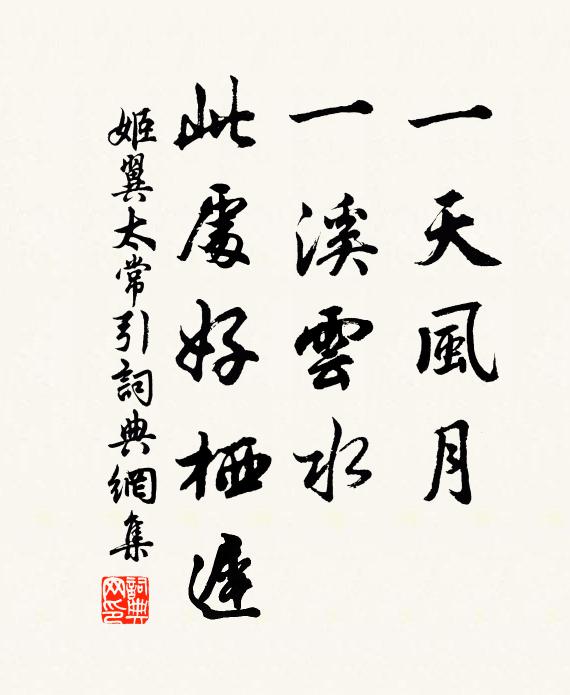 一天風月
一溪雲水
此處好栖遲
姬翼太常引詞典網集
詞典网印